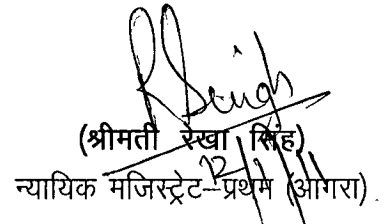 R Singh
(श्रीमती रेखा सिंह)
न्यायिक मजिस्ट्रेट–प्रथम (आगरा)